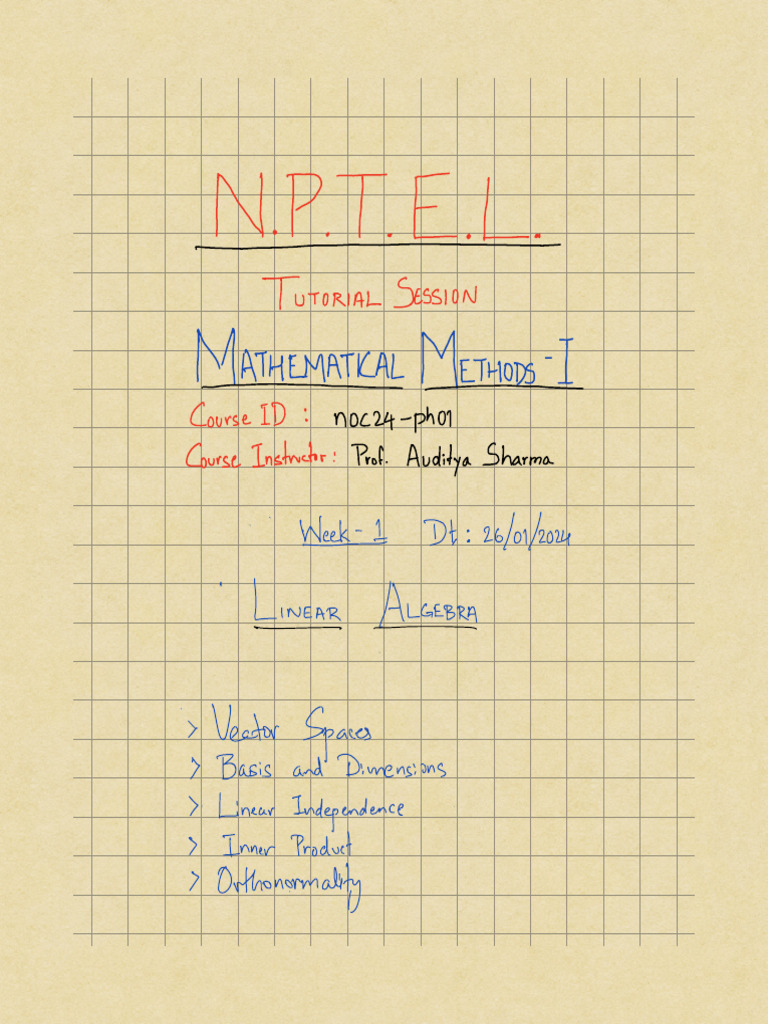 N.P.T.E.L.
TUTORIAL SESSION
MATHEMATICAL METHODS-I
Course ID : noc24-ph01
Course Instructor: Prof. Auditya Sharma
Week-1 Dt: 26/01/2024
LINEAR ALGEBRA
> Vector Spaces
> Basis and Dimensions
> Linear Independence
> Inner Product
> Orthonormality